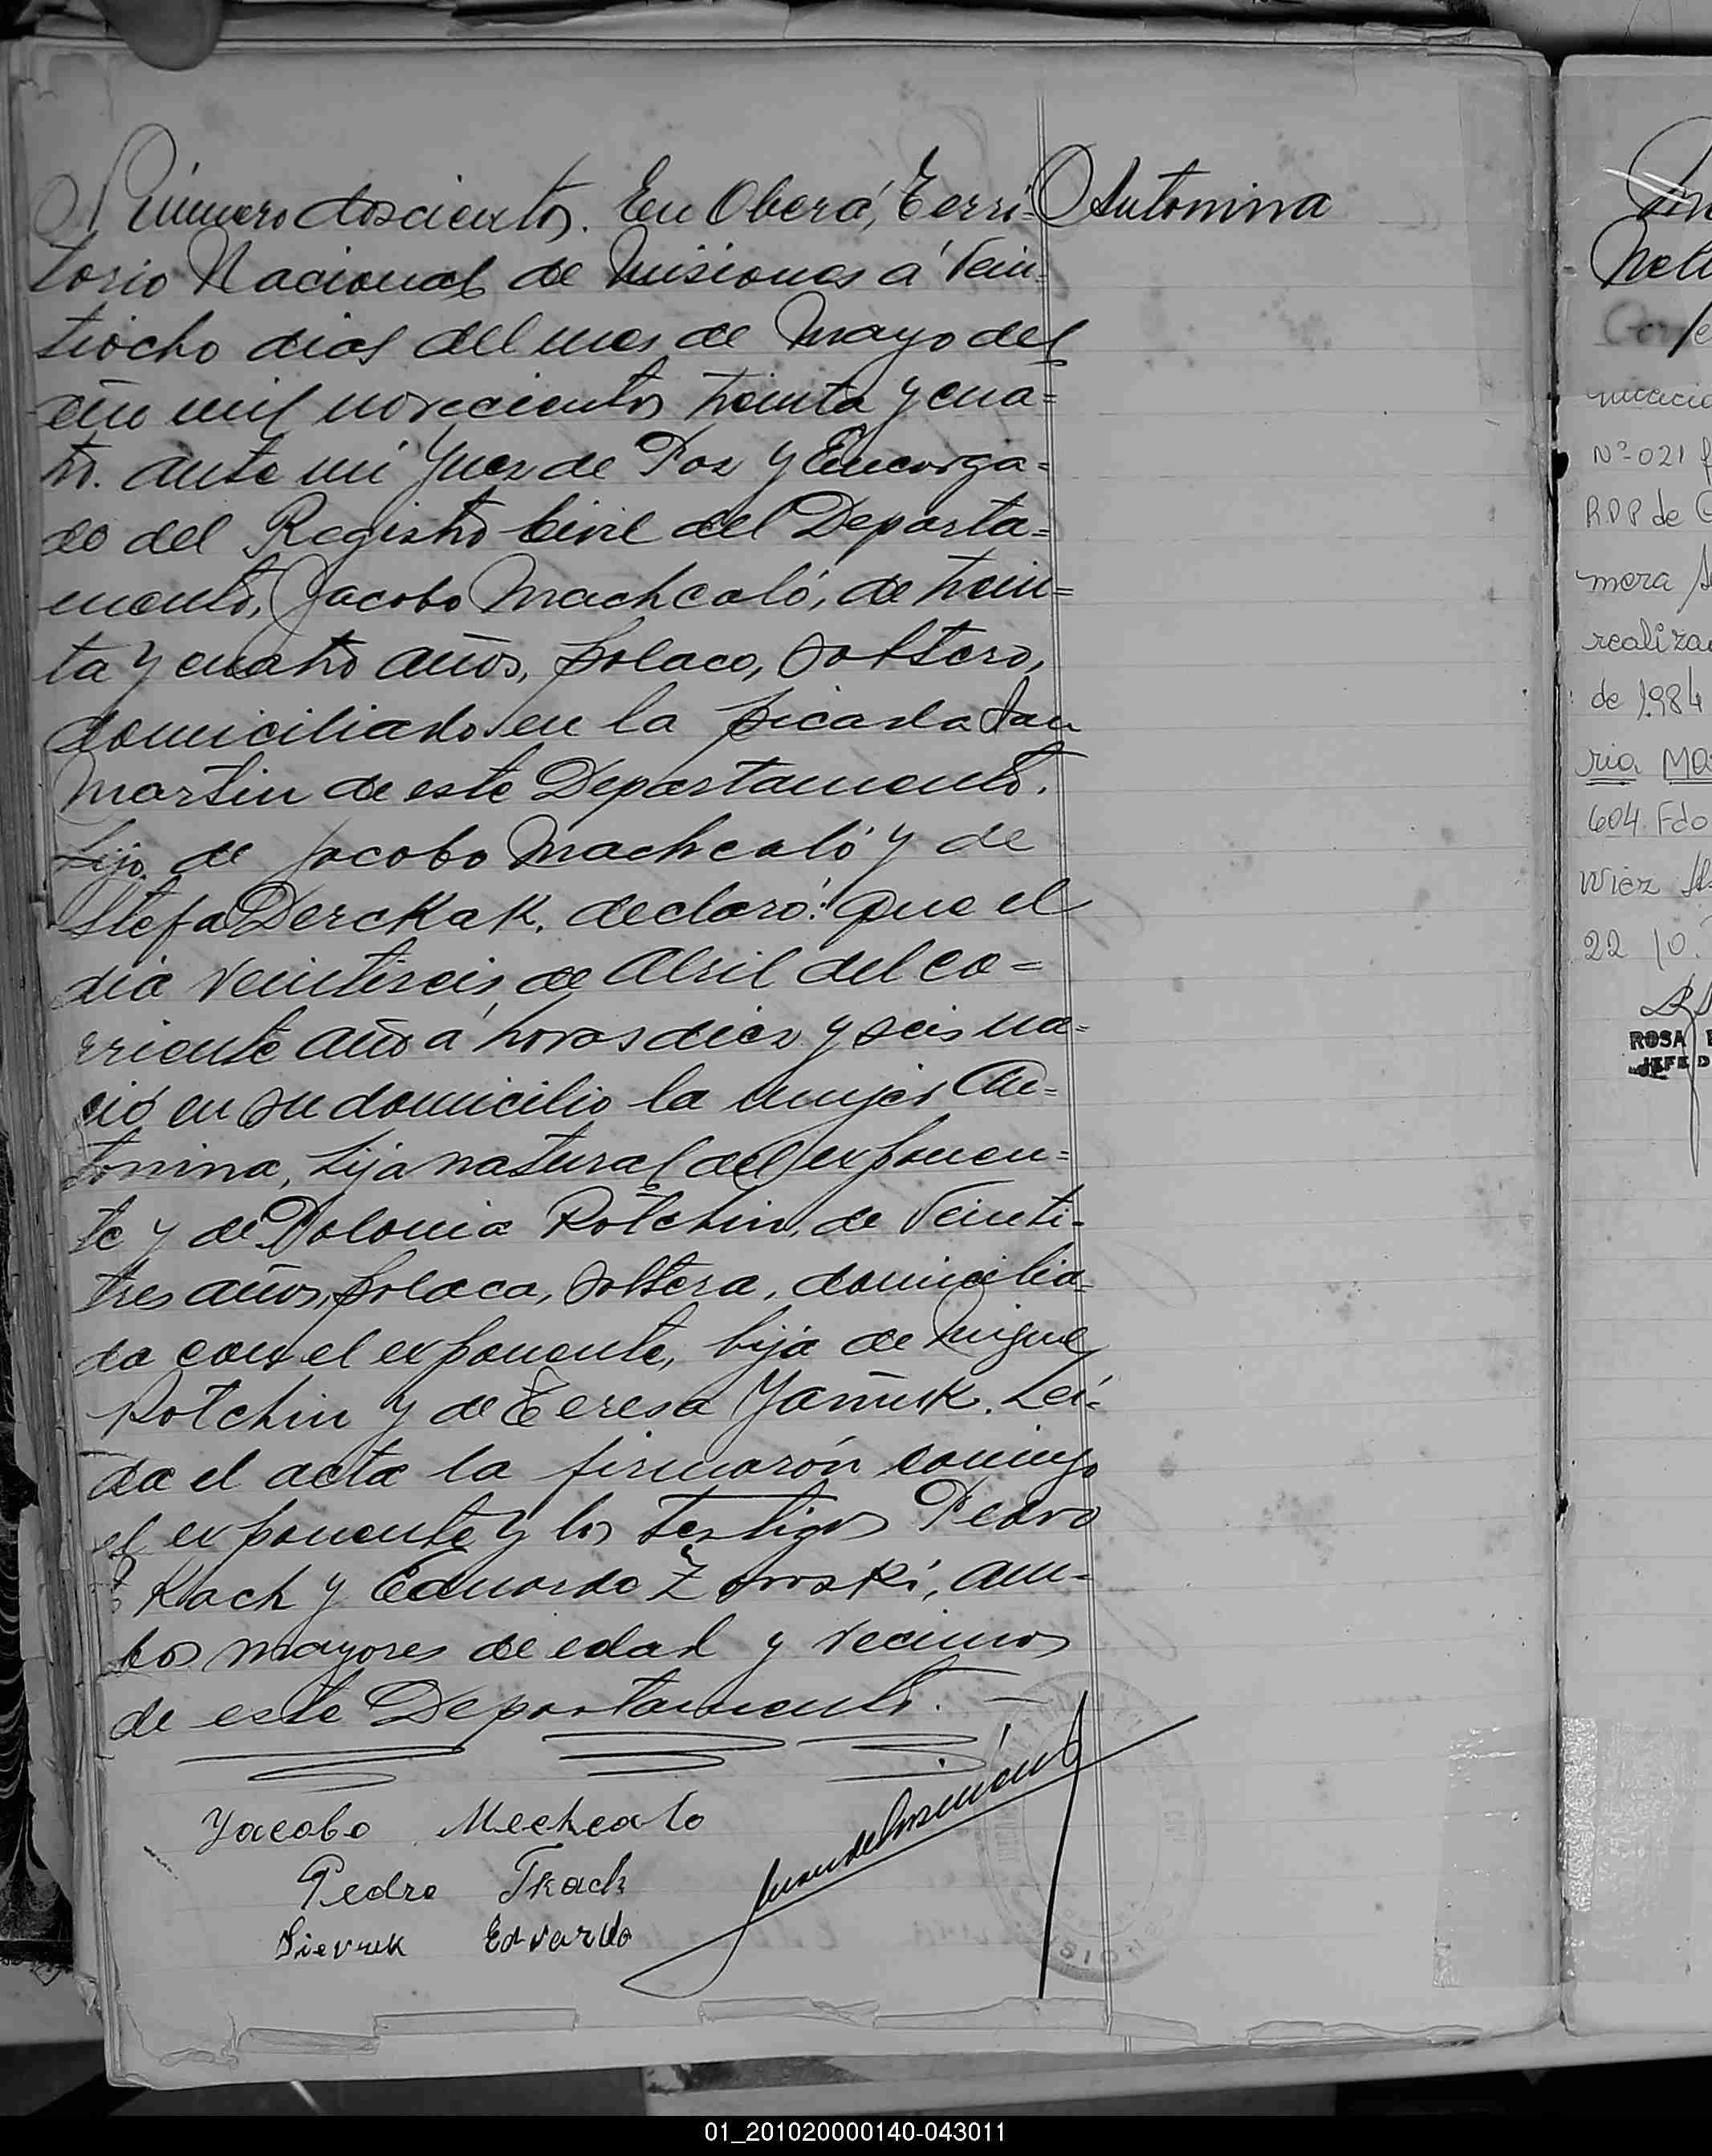 Número doscientos. En Oberá, Terri-
torio Nacional de Misiones á Vein-
tiocho dias del mes de Mayo del
año mil novecientos treinta y cua=
tro. ante mi Juez de Paz y Encarga=
do del Registro Civil del Departa=
mento, Jacobo Machcaló, de trein=
ta y cuatro años, polaco, soltero,
domiciliado en la picada San
Martin de este Departamento.
hijo de Jacobo Machcaló y de
Stefa Derckak. declaró: que el
dia veintiseis de Abril del co=
rriente año á horas diez y seis na=
ció en su domicilio la mujer An=
tonina, hija natural del exponen=
te y de Polonia Rotchin, de Veinti-
tres años, polaca, soltera, domicilia-
da con el exponente, hija de Miguel
Rotchin y de Teresa Yañuk. Leí-
da el acta la firmarón conmigo
el exponente y los testigos Pedro
Kach y Eduardo, am-
bos mayores de edad y vecinos
de este Departamento.
Antonina
Yacobo Mechcalo
Pedro Tkach
Sievruk Edvardo
nunciа
Nº-021
R.D.P de
mera
realiza
de 1984
ria Ma
604. Fdo
wicz
22 10.
ROSA
JEFE D
01_201020000140-043011